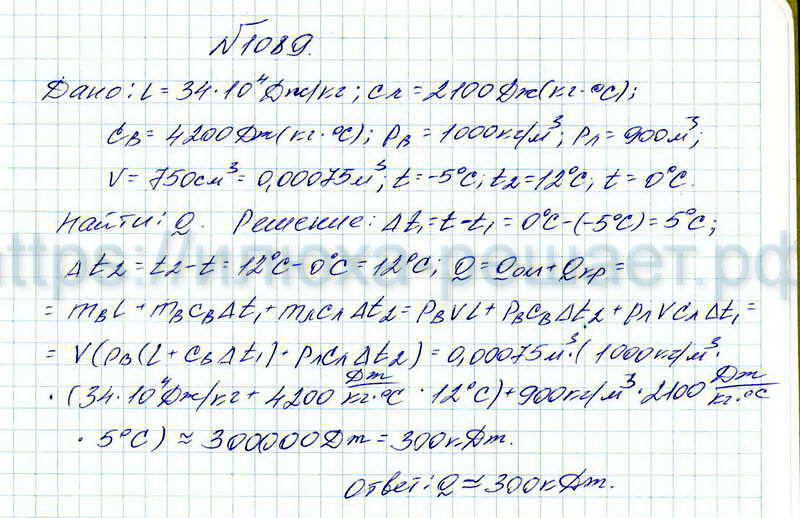 №1089.
Дано: L = 34·10⁴Дж/кг; cл = 2100Дж(кг·°C);
cв = 4200Дж(кг·°C); ρв = 1000кг/м³; ρл = 900м³;
V = 750см³ = 0,00075м³; t = -5°C; t2 = 12°C; t = 0°C.
Найти: Q. Решение: Δt₁ = t - t₁ = 0°C - (-5°C) = 5°C;
https://илюха-решает.рф
Δt2 = t2 - t = 12°C - 0°C = 12°C; Q = Qом + Qкр =
= mвL + mвcвΔt₁ + mлcлΔt2 = ρвVL + ρвcвΔt2 + ρлVcлΔt₁ =
= V(ρв(L + cвΔt₁) + ρлcлΔt2) = 0,00075м³·(1000кг/м³·
·(34·10⁴Дж/кг + 4200 Дж/кг·°C · 12°C) + 900кг/м³·2100 Дж/кг·°C
· 5°C) ≈ 300000Дж = 300кДж.
Ответ: Q ≈ 300кДж.